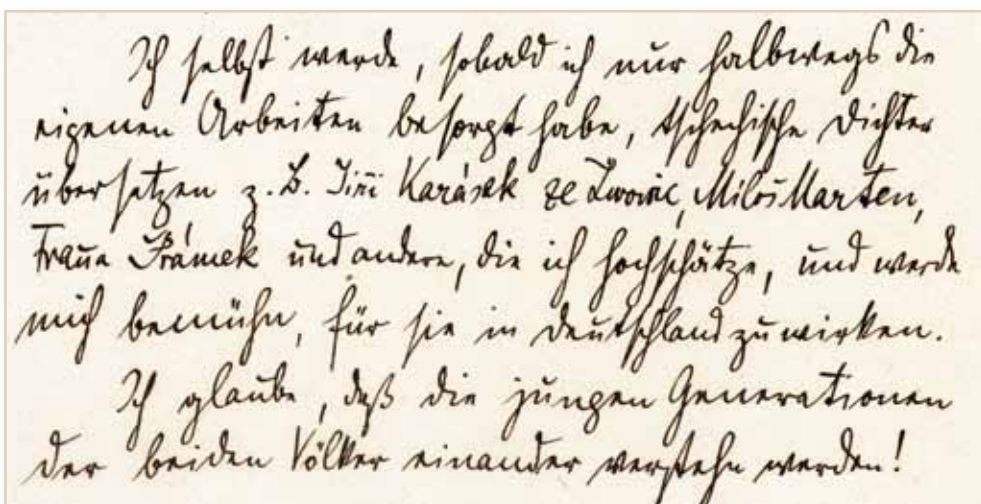 Ich selbst werde, sobald ich nur halbwegs die
eigenen Arbeiten besorgt habe, tschechische Dichter
übersetzen z. B. Jiři Karásek ze Lwovic, Miloš Marten,
Fraňa Šrámek und andere, die ich hochschätze, und werde
mich bemühn, für sie in Deutschland zu wirken.
Ich glaube, daß die jungen Generationen
der beiden Völker einander verstehn werden!